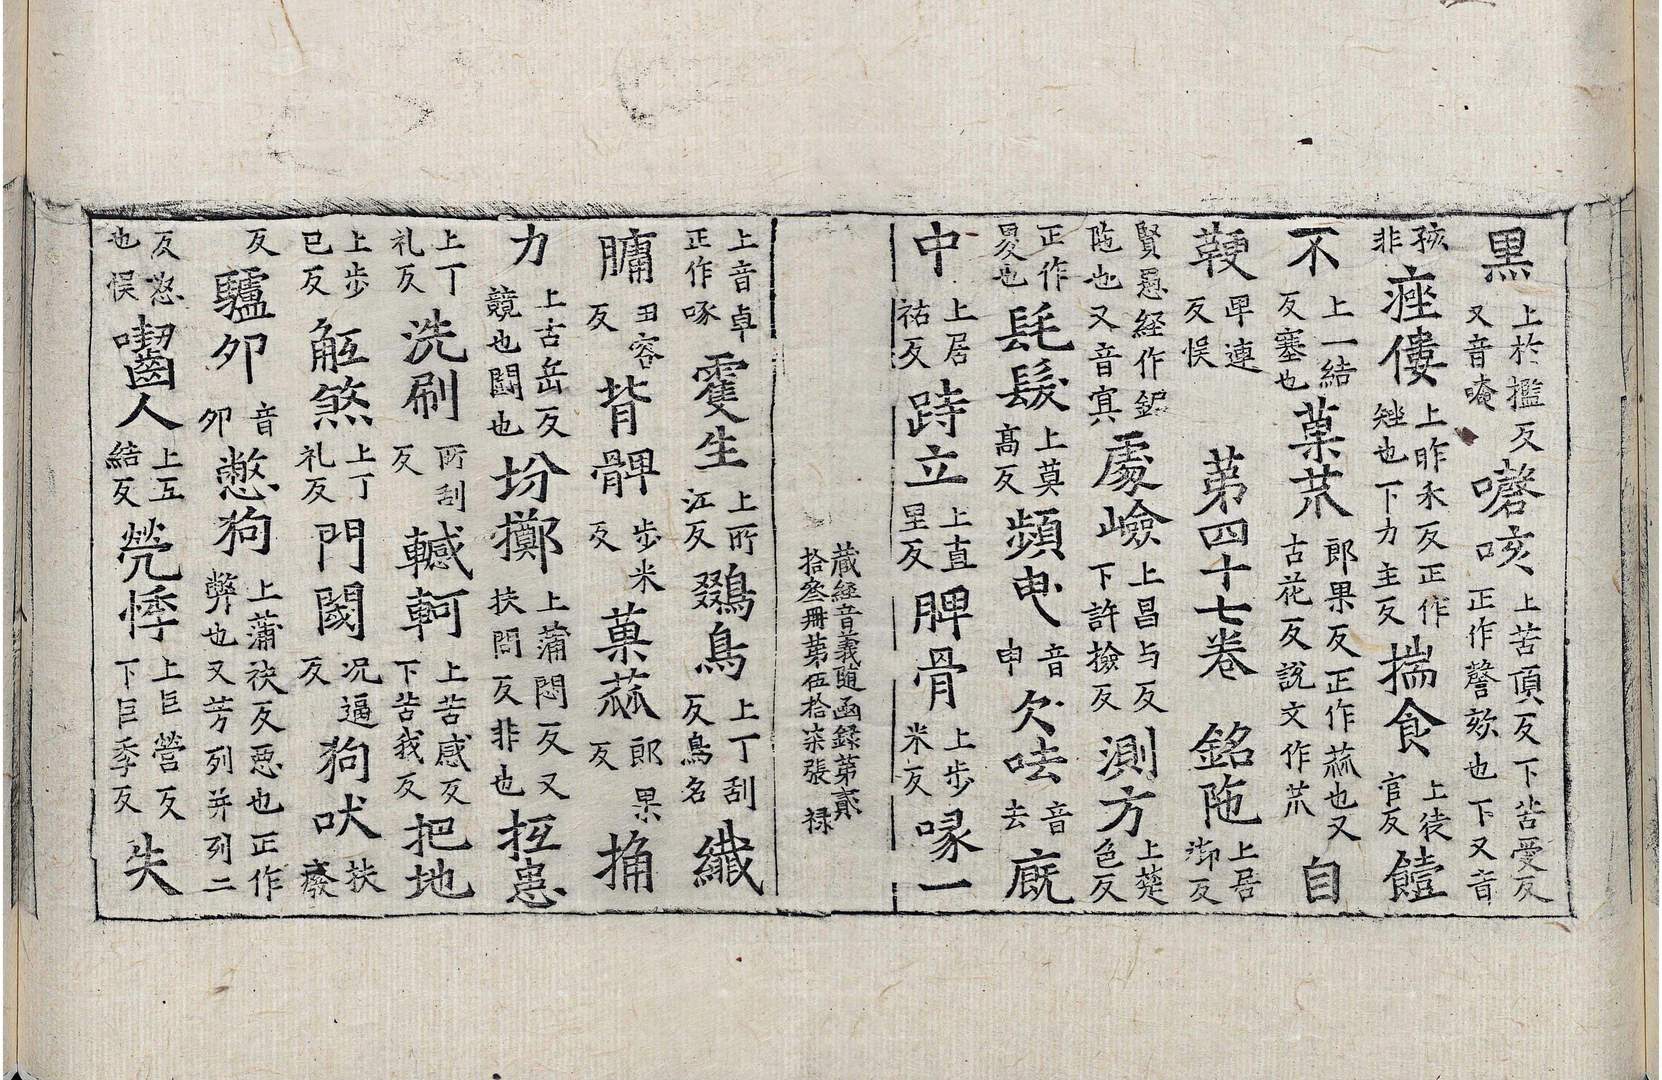 黒上於檻反又音晻嚫咳上苦頂反下苦愛反正作謦欬也下又音
孩非痤僂上昨禾反正作矬也下力主反揣食上徒官反饐
不上一結反塞也菓苽郎果反正作蓏也又古花反說文作苽自
鞕甲連反悮第四十七卷銘陁上居御反
賢愚経作鋸陁也又音宜處嶮上昌与反下許撿反測方上楚色反
正作畟也髦髮上莫高反頻申音申欠呿音去廐
中上居祐反跱立上直里反脾骨上步米反喙一
蔵経音義隨函録第貳
拾叄冊第伍拾柒張 禄
上音卓正作啄䨥生上所江反鵽鳥上丁刮反鳥名纎
牅丑容反背髀步米反菓蓏郎果反捔
力上古岳反競也鬪也坋擲上蒲悶反又扶問反非也抂患
上丁礼反洗刷所刮反轗軻上苦感反下苦我反把地
上步巴反觝煞上丁礼反門閾况逼反狗吠扶癈
反驢夘音夘憋狗上蒲袂反惡也正作弊也又芳列并列二
反怒也悮嚙人上五結反焭悸上巨營反下巨季反失